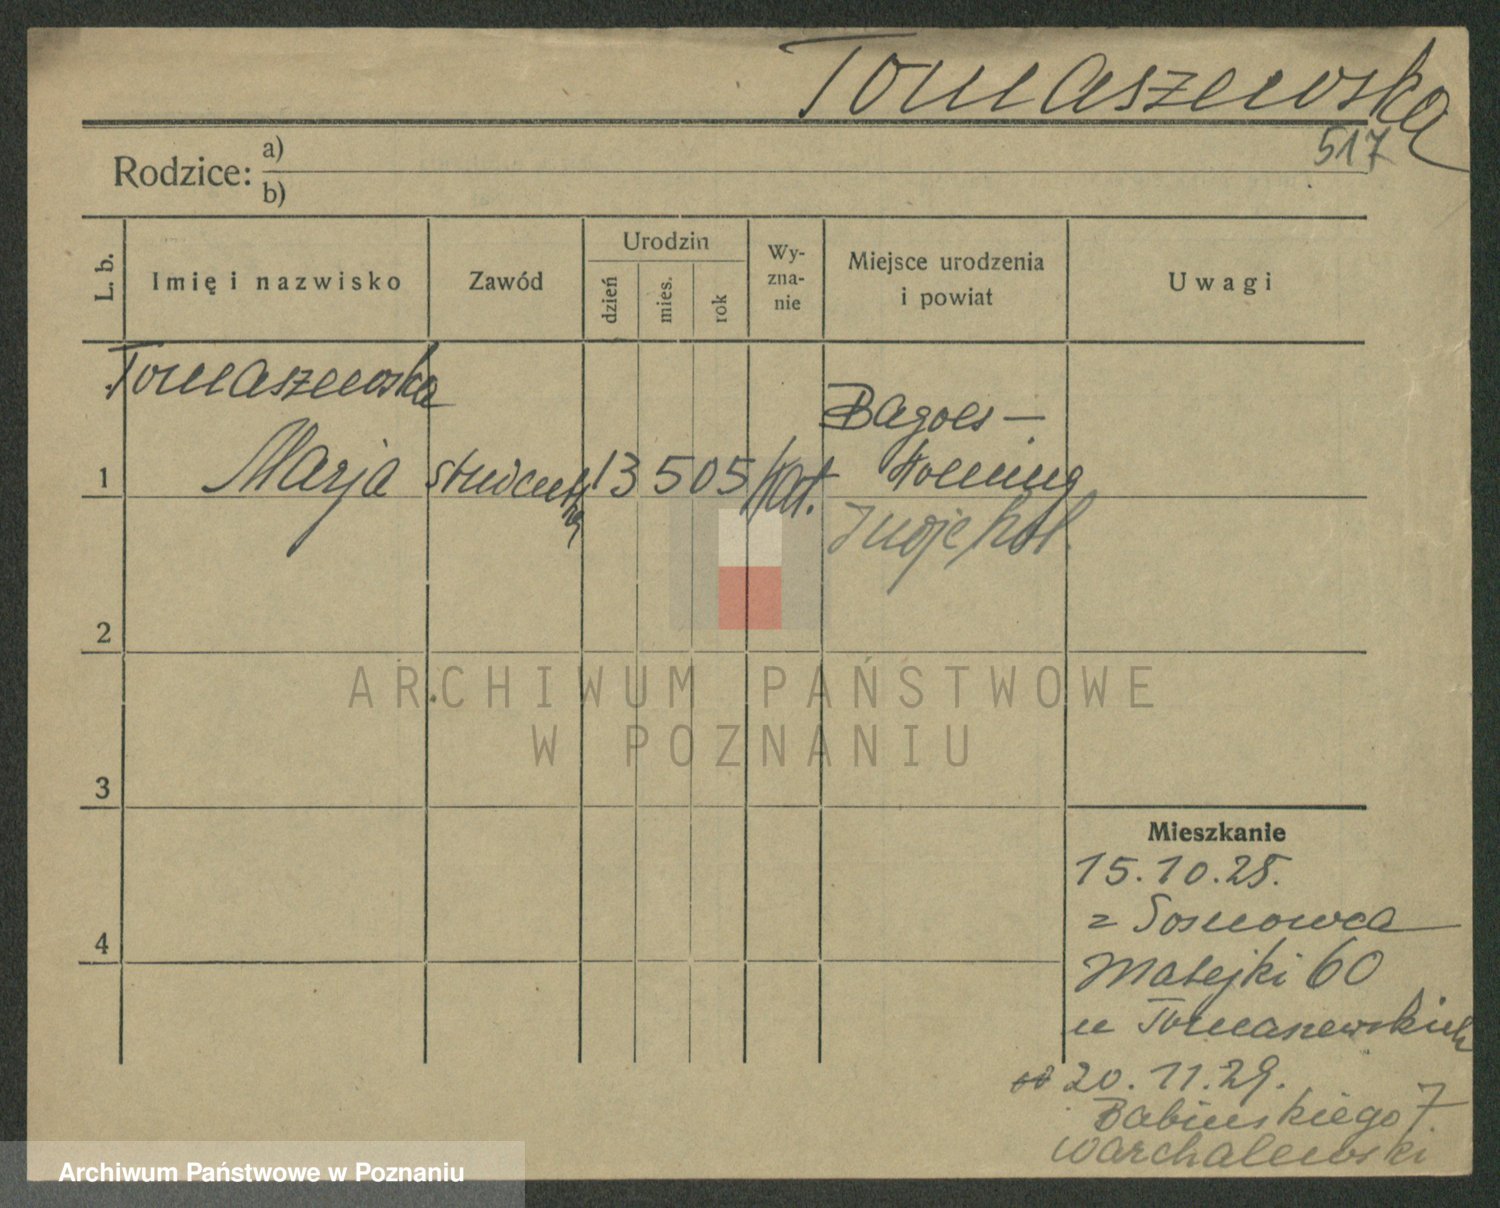 Tomaszewska
517
Rodzice: a)
b)
L. b.
Imię i nazwisko
Zawód
Urodzin
dzień
mies.
rok
Wy-
zna-
nie
Miejsce urodzenia
i powiat
Uwagi
Tomaszewska
1 Marja studentka 13 5 05 kat.
2
3
4
Mieszkanie
15.10.28.
z Sosnowca
Matejki 60
u Tomaszewskich
od 20.11.29.
Babińskiego 7
Warchalewski
ARCHIWUM PAŃSTWOWE
W POZNANIU
Archiwum Państwowe w Poznaniu